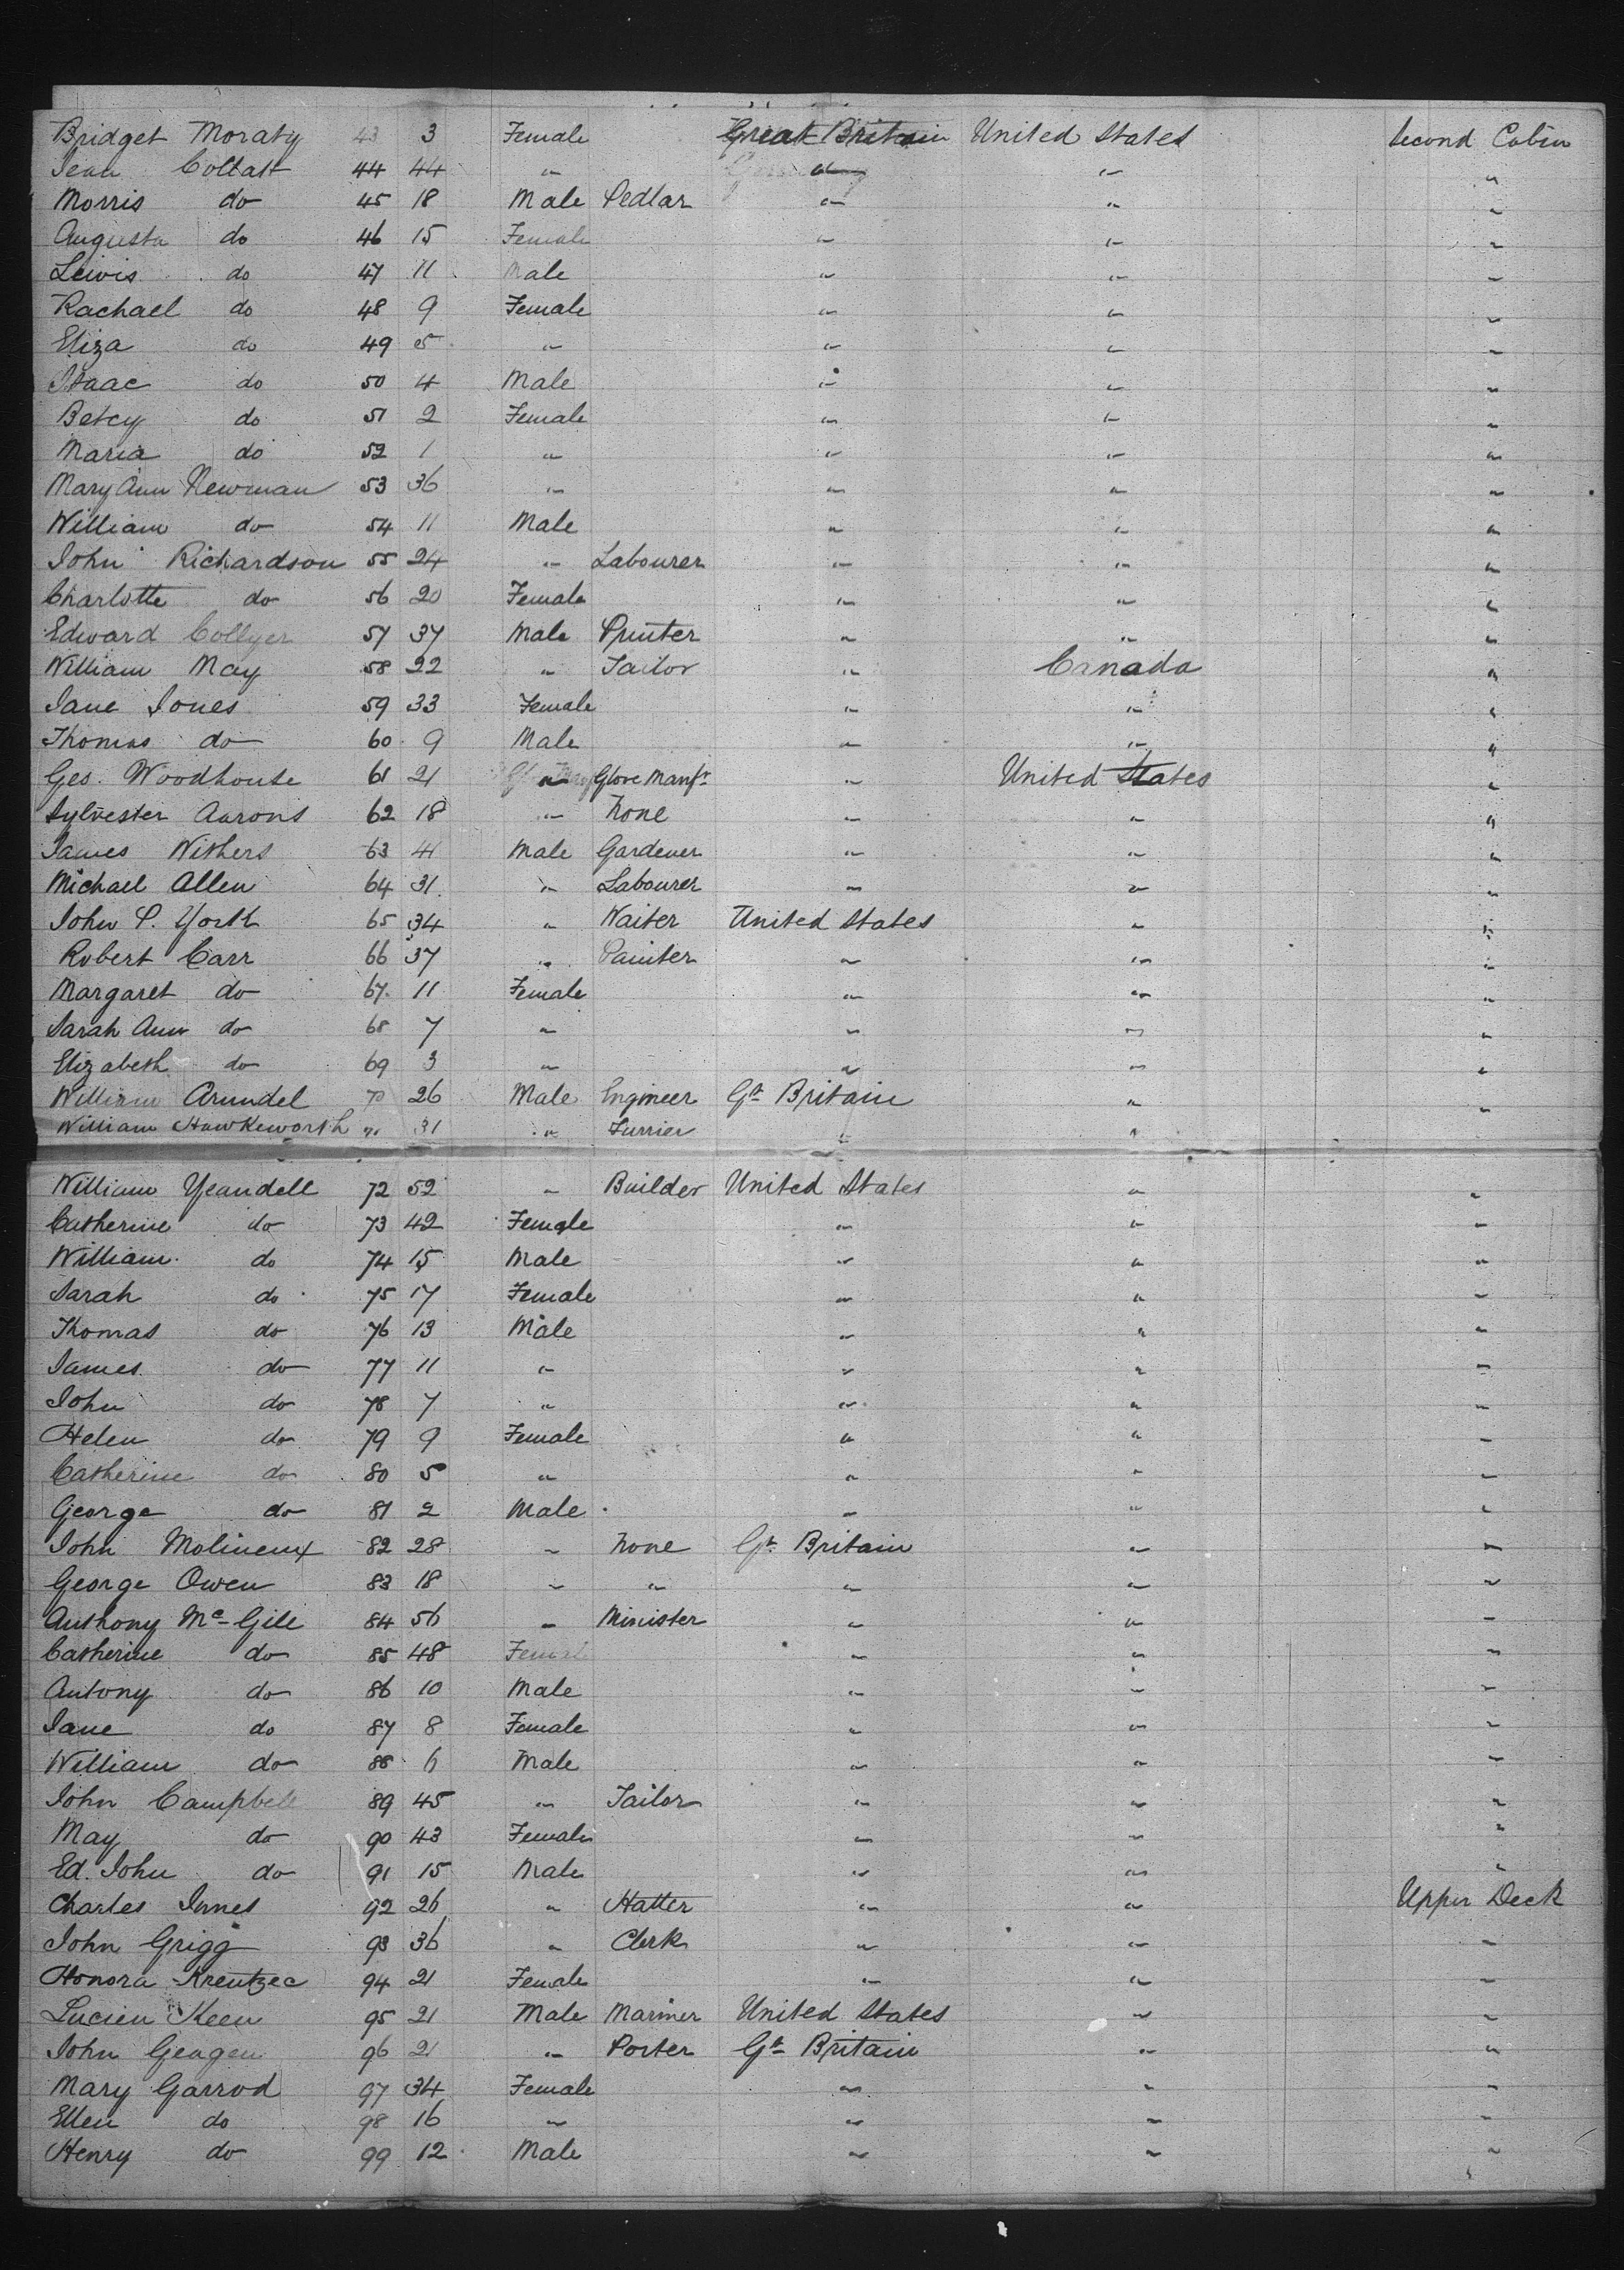 Bridget Moraty 43 3 Female Great Britain United States Second Cabin
Jean Collatt 44 44 " " " "
Morris do 45 18 Male Pedlar " " "
Augusta do 46 15 Female " " "
Lewis do 47 11 Male " " "
Rachael do 48 9 Female " " "
Eliza do 49 5 " " " "
Isaac do 50 4 Male " " "
Betcy do 51 2 Female " " "
Maria do 52 1 " " " "
Mary Ann Newman 53 36 " " " "
William do 54 11 Male " " "
John Richardson 55 24 " Labourer " " "
Charlotte do 56 20 Female " " "
Edward Collyer 57 37 Male Printer " " "
William May 58 22 " Tailor " Canada "
Jane Jones 59 33 Female " " "
Thomas do 60 9 Male " " "
Geo. Woodhouse 61 21 " Glove Manfr " United States "
Sylvester Aarons 62 18 " None " " "
James Withers 63 41 Male Gardener " " "
Michael Allen 64 31 " Labourer " " "
John P. York 65 34 " Waiter United States " "
Robert Carr 66 37 " Painter " " "
Margaret do 67 11 Female " " "
Sarah Ann do 68 7 " " " "
Elizabeth do 69 3 " " " "
William Arundel 70 26 Male Engineer Gt Britain " "
William Hawkeworth 71 31 " Furrier " "
William Yeandell 72 52 " Builder United States " "
Catherine do 73 42 Female " " "
William do 74 15 Male " " "
Sarah do 75 17 Female " " "
Thomas do 76 13 Male " " "
James do 77 11 " " " "
John do 78 7 " " " "
Helen do 79 9 Female " " "
Catherine do 80 5 " " " "
George do 81 2 Male " " "
John Molineux 82 28 " None Gt Britain " "
George Owen 83 18 " " " " "
Anthony Mc Gill 84 56 " Minister " " "
Catherine do 85 48 Female " " "
Antony do 86 10 Male " " "
Jane do 87 8 Female " " "
William do 88 6 Male " " "
John Campbell 89 45 " Tailor " " "
May do 90 43 Female " " "
Ed. John do 91 15 Male " " "
Charles Innes 92 26 " Hatter " " Upper Deck
John Grigg 93 36 " Clerk " " "
Honora Kreutzec 94 21 Female " " "
Lucien Keen 95 21 Male Mariner United States " "
John Geagen 96 21 " Porter Gt Britain " "
Mary Garrod 97 34 Female " " "
Ellen do 98 16 " " " "
Henry do 99 12 Male " " "